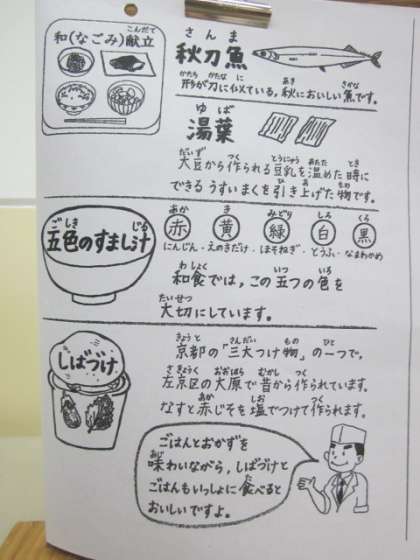 和(なごみ)献立
こんだて
さんま
秋刀魚
かたち かたな に あき さかな
形が刀に似ている。秋においしい魚です。
ゆば
湯葉
だいず つく とうにゅう あたた とき
大豆から作られる豆乳を温めた時に
ひ あ もの
できるうすいまくを引き上げた物です。
ごしき じる
五色のすまし汁
あか き みどり しろ くろ
赤 黄 緑 白 黒
にんじん・えのきだけ・ほそねぎ・とうふ・なまわかめ
わしょく いつ いろ
和食では、この五つの色を
たいせつ
大切にしています。
しばづけ
きょうと さんだい もの ひと
京都の「三大つけ物」の一つで、
さきょうく おおはら むかし つく
左京区の大原で昔から作られています。
あか しお つく
なすと赤じそを塩でつけて作られます。
ごはんとおかずを
あじ
味わいながら、しばづけと
た
ごはんもいっしょに食べると
おいしいですよ。